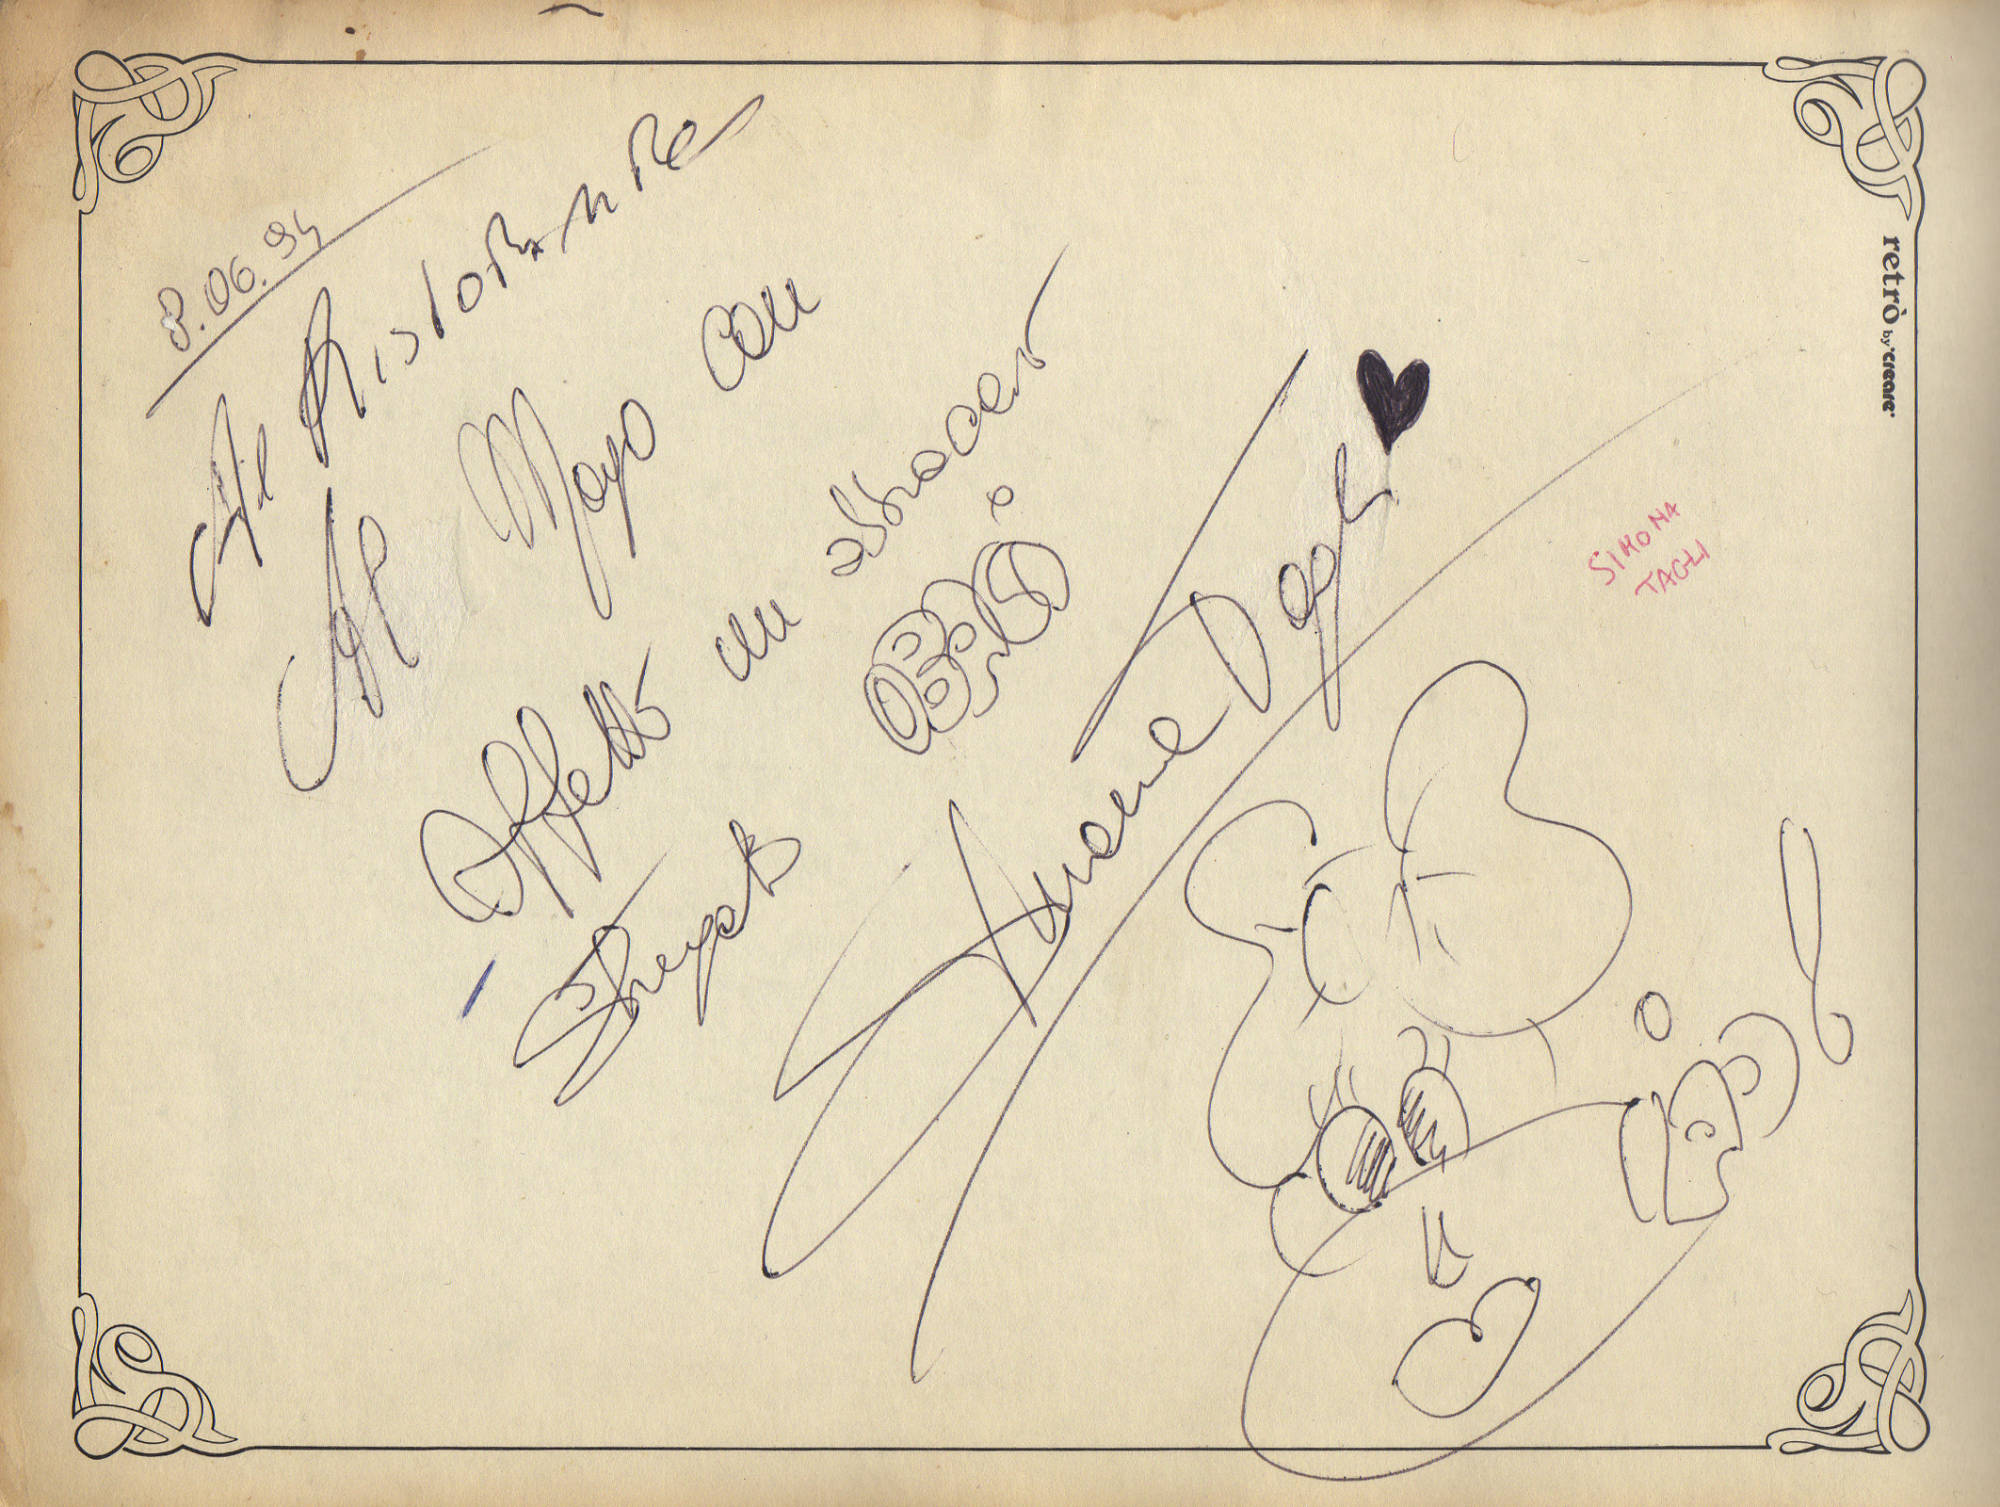 8.06.94
Al Ristorante
Al Mago con
Affetto un abbraccio
Stregato
Simona Tagli
SIMONA
TAGLI
retrò by creare